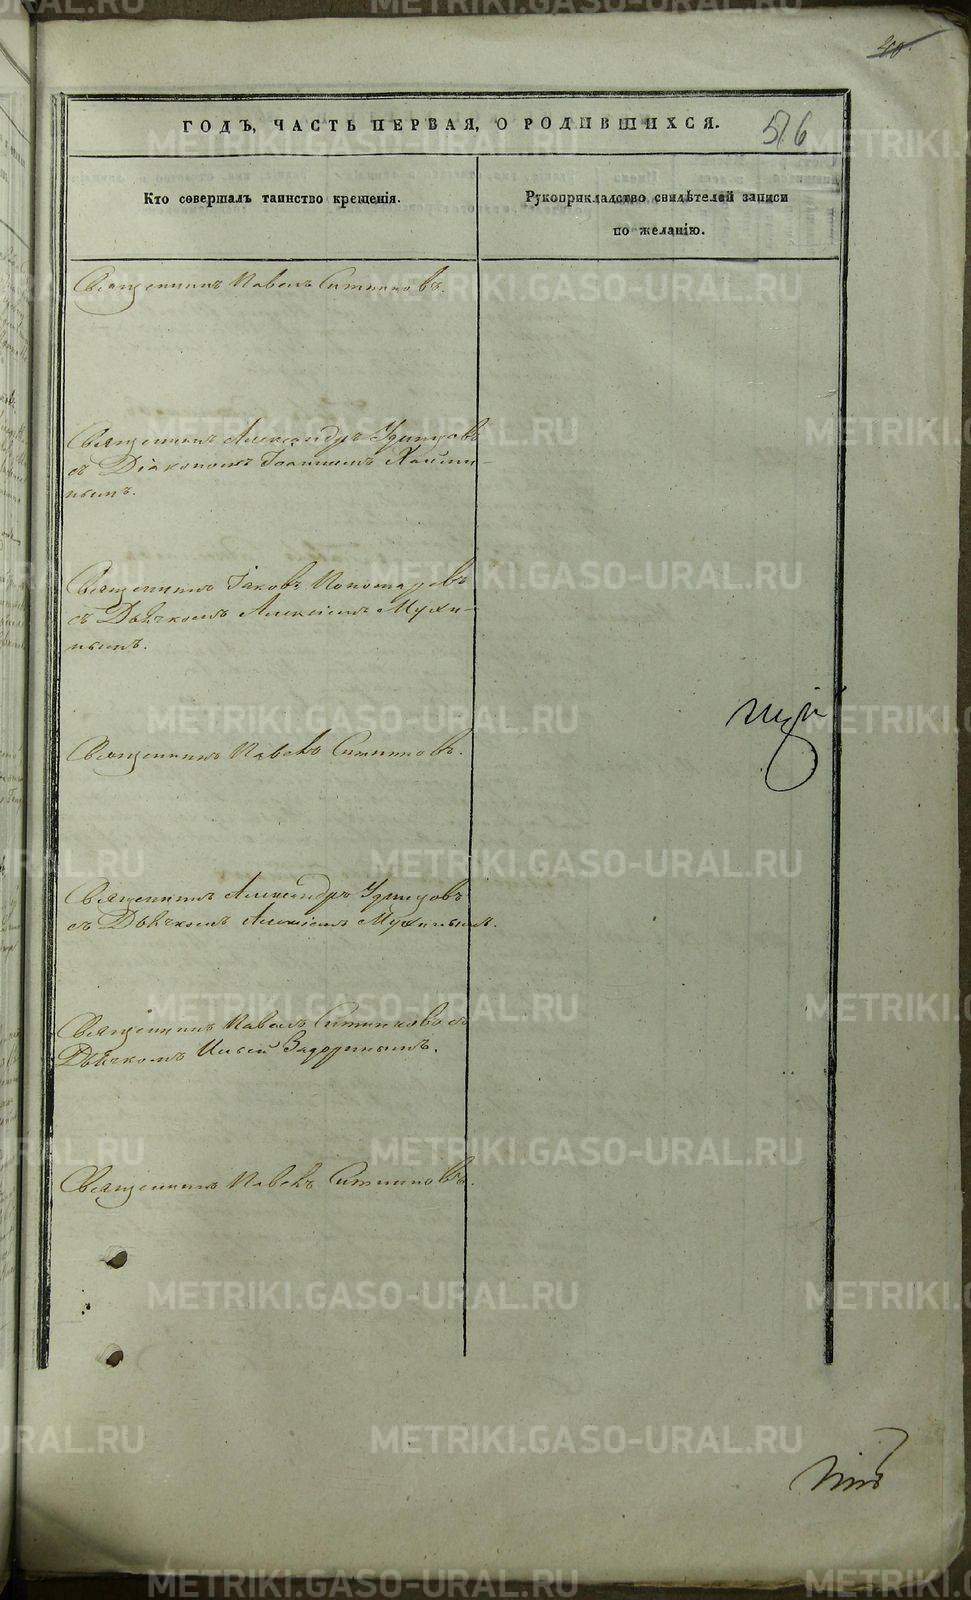 40.
ГОДЪ, ЧАСТЬ ПЕРВАЯ, О РОДИВШИХСЯ.
576
Кто совершалъ таинство крещенія.
Рукоприкладство свидѣтелей записи
по желанію.
Священникъ Павелъ Ситниковъ.
Священникъ Александръ Удинцовъ
съ Діакономъ Іоанномъ
нымъ.
Священникъ Іаковъ Пономаревъ
съ Дьячкомъ Алексіемъ Мухи-
нымъ.
Священникъ Павелъ Ситниковъ.
Священникъ Александръ Удинцовъ
съ Дьячкомъ Алексіемъ Мухинымъ.
Священникъ Павелъ Ситниковъ съ
Дьячкомъ Ильей Задоринымъ.
Священникъ Павелъ Ситниковъ.
METRIKI.GASO-URAL.RU